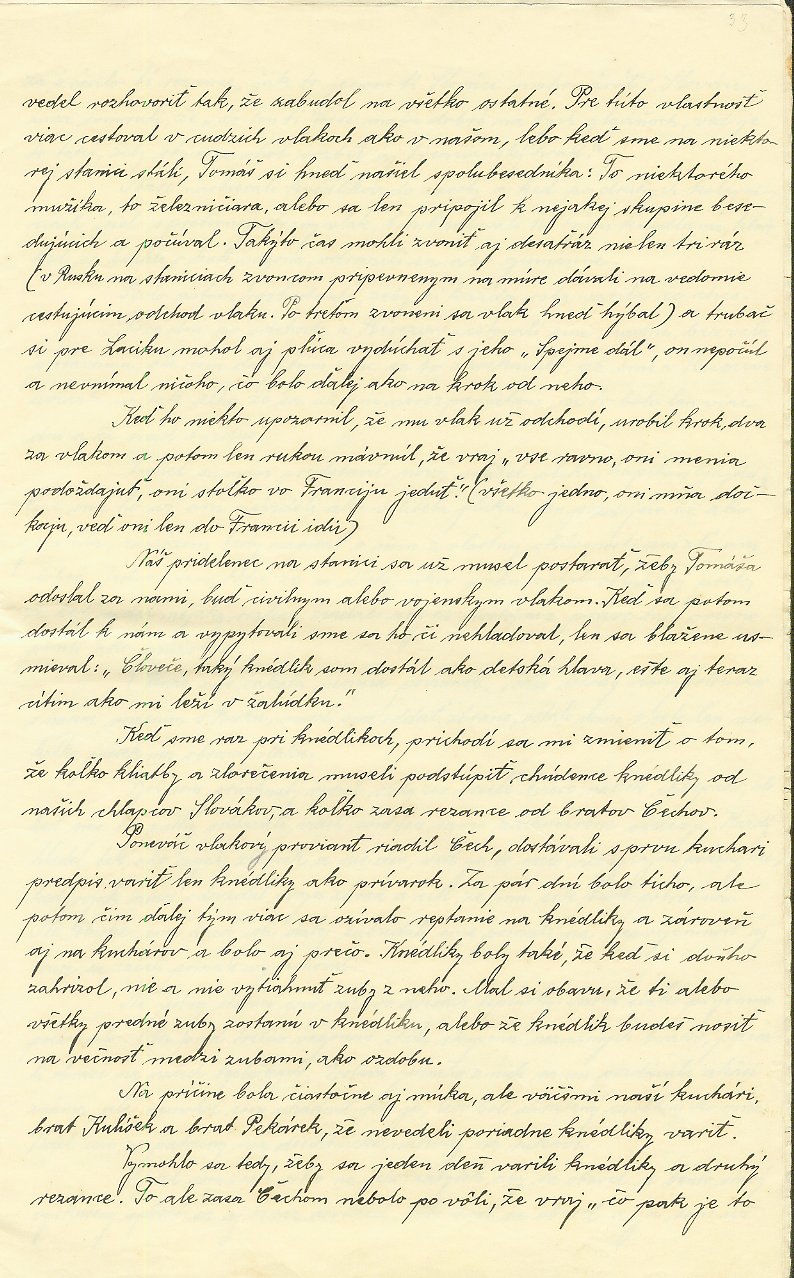 33
vedel rozhovoriť tak, že zabudol na všetko ostatné. Pre túto vlastnosť
viac cestoval v cudzích vlakoch ako v našom, lebo keď sme na niekto-
rej stanici stáli, Tomáš si hneď našiel spolubesedníka: To niektorého
mužika, to železničiara, alebo sa len pripojil k nejakej skupine bese-
dujúcich a počúval. Takýto čas mohli zvoniť aj desaťráz nielen tri ráz
(v Rusku na staniciach zvoncom pripevneným na múre dávali na vedomie
cestujúcim odchod vlaku. Po treťom zvonení sa vlak hneď hýbal) a trubač
si pre Laciku mohol aj pľúca vydúchať s jeho „Spejme dál", on nepočúl
a nevnímal ničoho, čo bolo ďalej ako na krok od neho.
Keď ho niekto upozornil, že mu vlak už odchodí, urobil krok, dva
za vlakom a potom len rukou mávnúl, že vraj „vse ravno, oni menia
podoždajuť, oni stoľko vo Franciju jeduť." (všetko jedno, oni mňa doč-
kaju, veď oni len do Francii idú)
Náš pridelenec na stanici sa už musel postarať, žeby Tomáša
odoslal za nami, buď civilnym alebo vojenskym vlakom. Keď sa potom
dostál k nám a vypytovali sme sa ho či nehladoval, len sa blažene us-
mieval: „Človeče, taký knédlik som dostál ako detská hlava, ešte aj teraz
cítim ako mi leží v žalúdku."
Keď sme raz pri knédlikoch, prichodí sa mi zmieniť o tom,
že koľko kliatby a zlorečenia museli podstúpiť chúdence knédliky od
našich chlapcov Slovákov, a koľko zasa rezance od bratov Čechov.
Poneváč vlakový proviant riadil Čech, dostávali sprvu kuchari
predpis variť len knédliky ako prívarok. Za pár dní bolo ticho, ale
potom čím ďalej tým viac sa ozívalo reptanie na knédliky a zároveň
aj na kuchárov a bolo aj prečo. Knédliky boly také, že keď si doňho
zahrizol, nie a nie vytiahnuť zuby z neho. Mal si obavu, že ti alebo
všetky predné zuby zostanú v knédliku, alebo že knédlik budeš nosiť
na večnosť medzi zubami, ako ozdobu.
Na príčine bola čiastočne aj múka, ale väčšmi naší kuchári,
brat Kulíšek a brat Pekárek, že nevedeli poriadne knédliky variť.
Vymohlo sa tedy, žeby sa jeden deň varili knédliky a druhý
rezance. To ale zasa Čechom nebolo po vôli, že vraj „čo pak je to